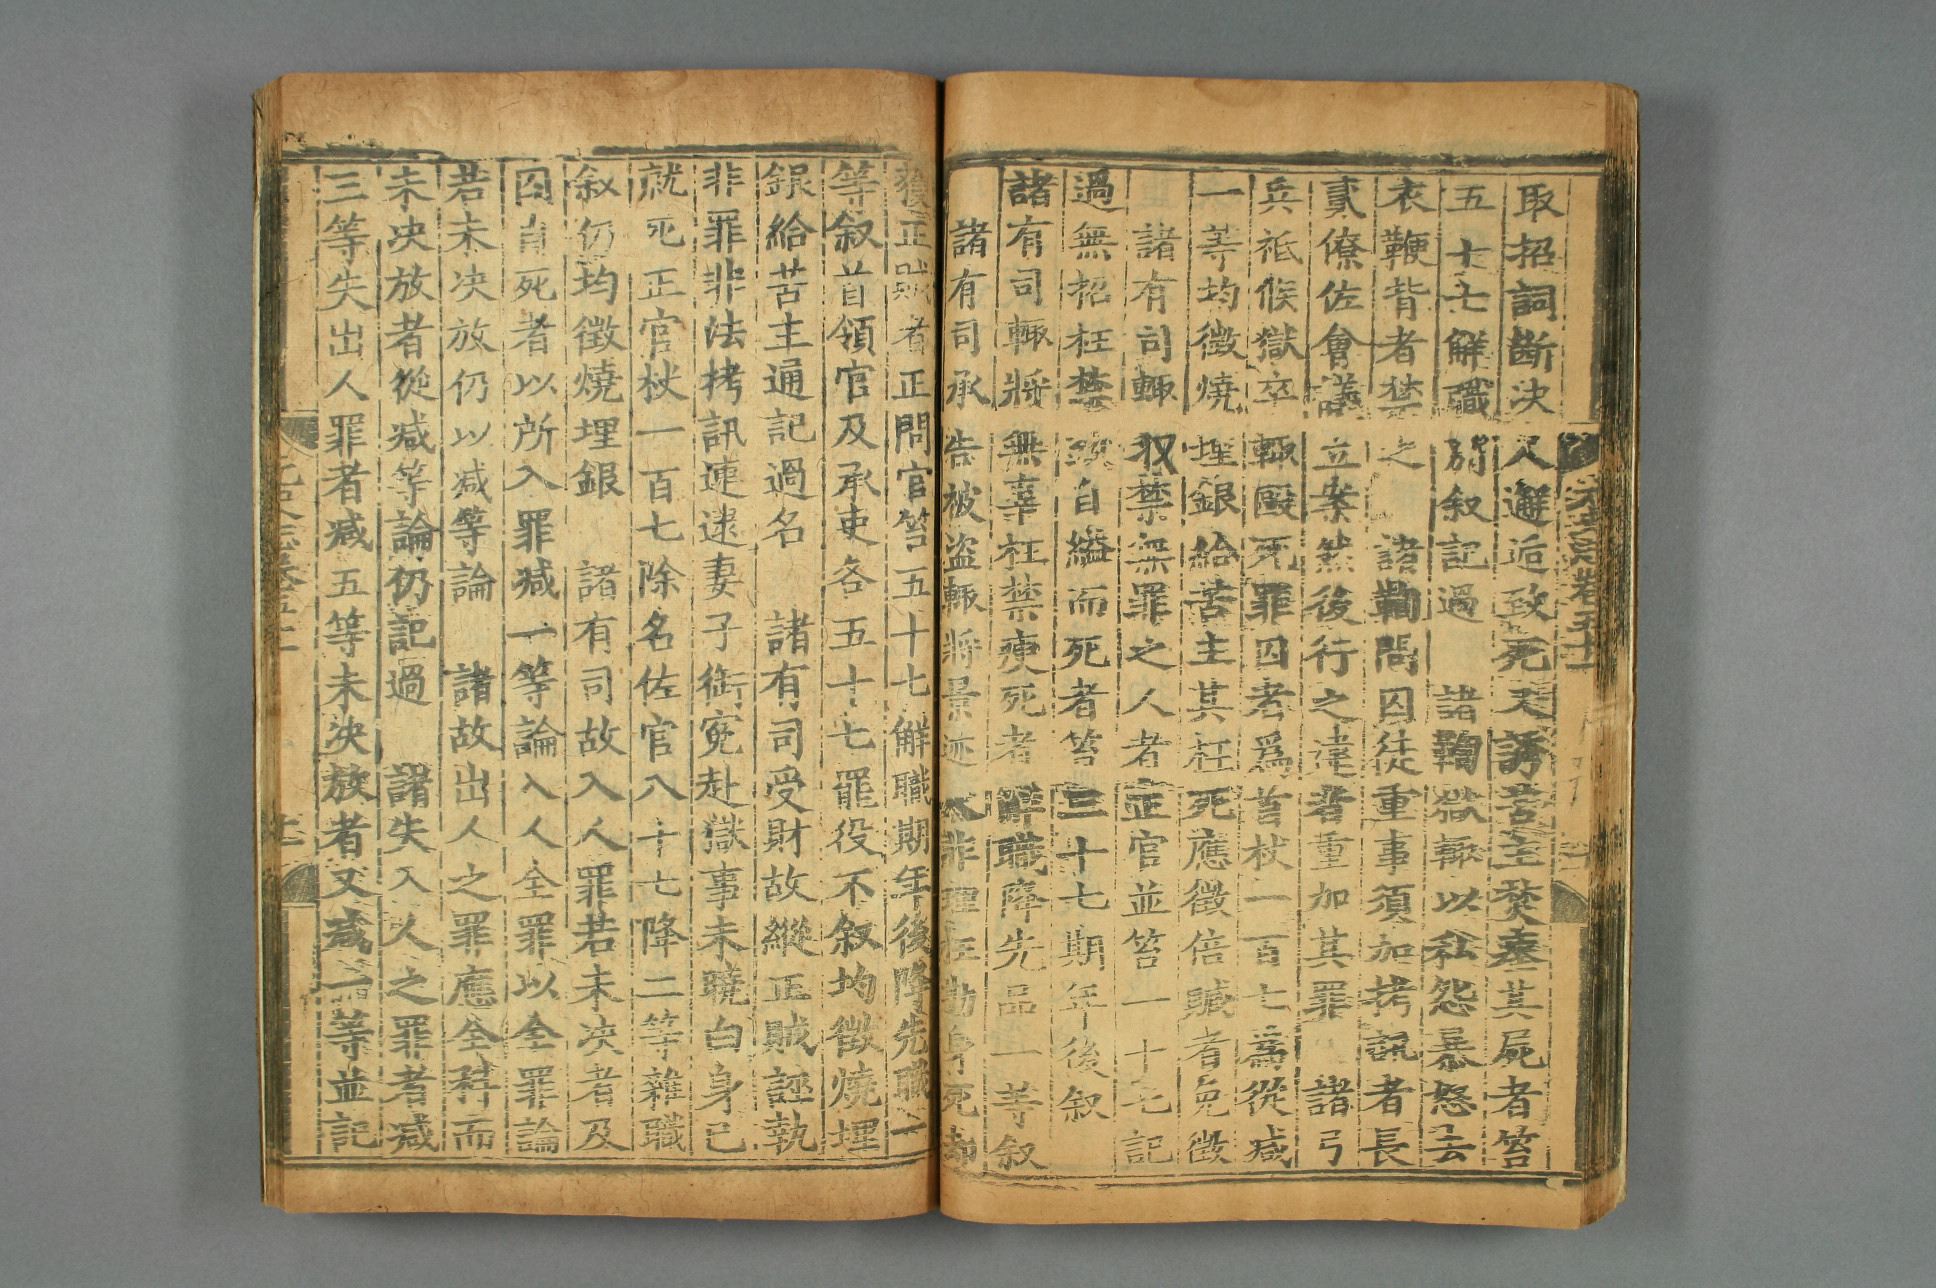 元史志卷五十一
取招詞斷決人邂逅致死又誘苦主焚瘞其屍者笞
五十七解職別叙記過　諸鞫獄輒以私怨暴怒去
衣鞭背者禁之　諸鞫問囚徒重事須加拷訊者長
貳僚佐會議立案然後行之違者重加其罪　諸弓
兵祗候獄卒輒毆死罪囚者爲首杖一百七爲從减
一等均徵燒埋銀給苦主其枉死應徵倍贓者免徵
諸有司輒収禁無罪之人者正官並笞一十七記
過無招枉禁致自縊而死者笞三十七期年後叙
諸有司輒將無辜枉禁瘐死者解職降先品一等叙
諸有司承告被盜輒將景迹人非理枉勘身死却
獲正賊者正問官笞五十七解職期年後降先職一
等叙首領官及承吏各五十七罷役不叙均徵燒埋
銀給苦主通記過名　諸有司受財故縱正賊誣執
非罪非法拷訊連逮妻子銜寃赴獄事未曉白身已
就死正官杖一百七除名佐官八十七降二等雜職
叙仍均徵燒埋銀　諸有司故入人罪若未决者及
囚自死者以所入罪减一等論入人全罪以全罪論
若未决放仍以减等論　諸故出人之罪應全科而
未决放者從减等論仍記過　諸失入人之罪者减
三等失出人罪者减五等未决放者又减一等並記